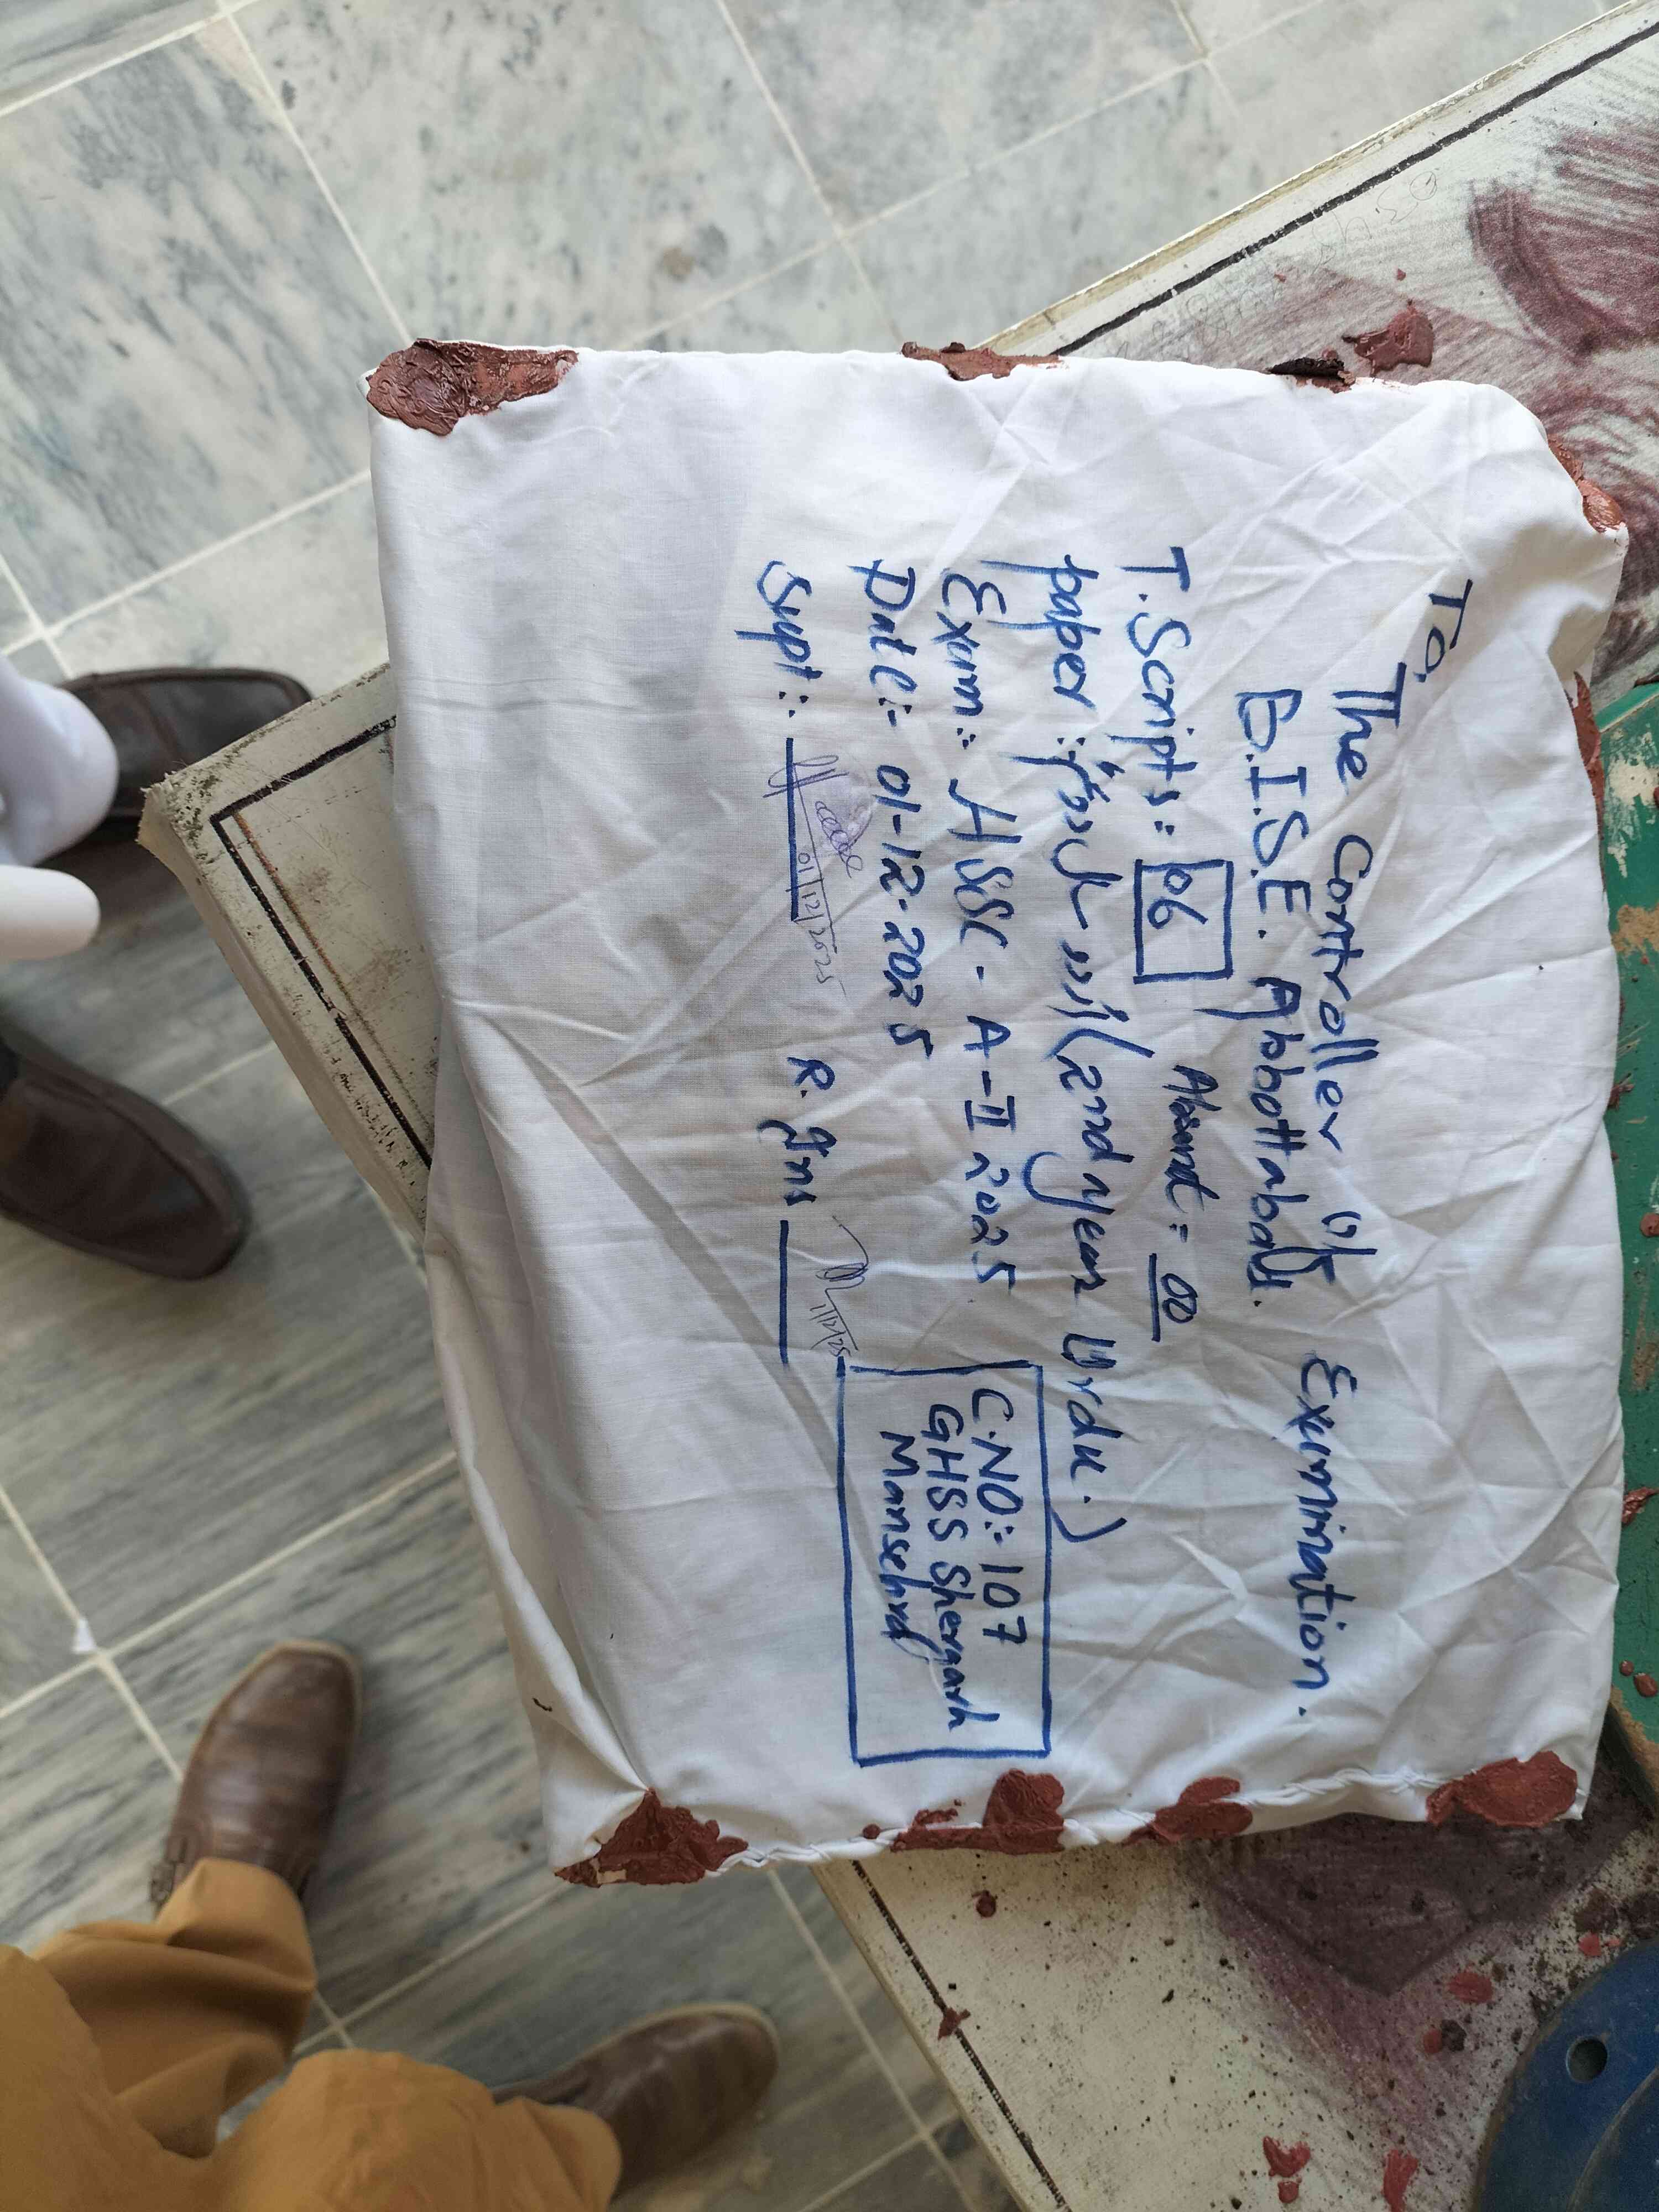 To,
The Controller of Examination.
B.I.S.E. Abbottabad.
T.Scripts = 06 Absent = 00
paper :- اردو سال دوم (2nd year Urdu.)
Exam:- HSSC - A-II 2025
Date:- 01-12-2025
Supt:- 01/12/2025 R. Ins 1/12/25
C.NO:- 107
GHSS Shergarh
Mansehra